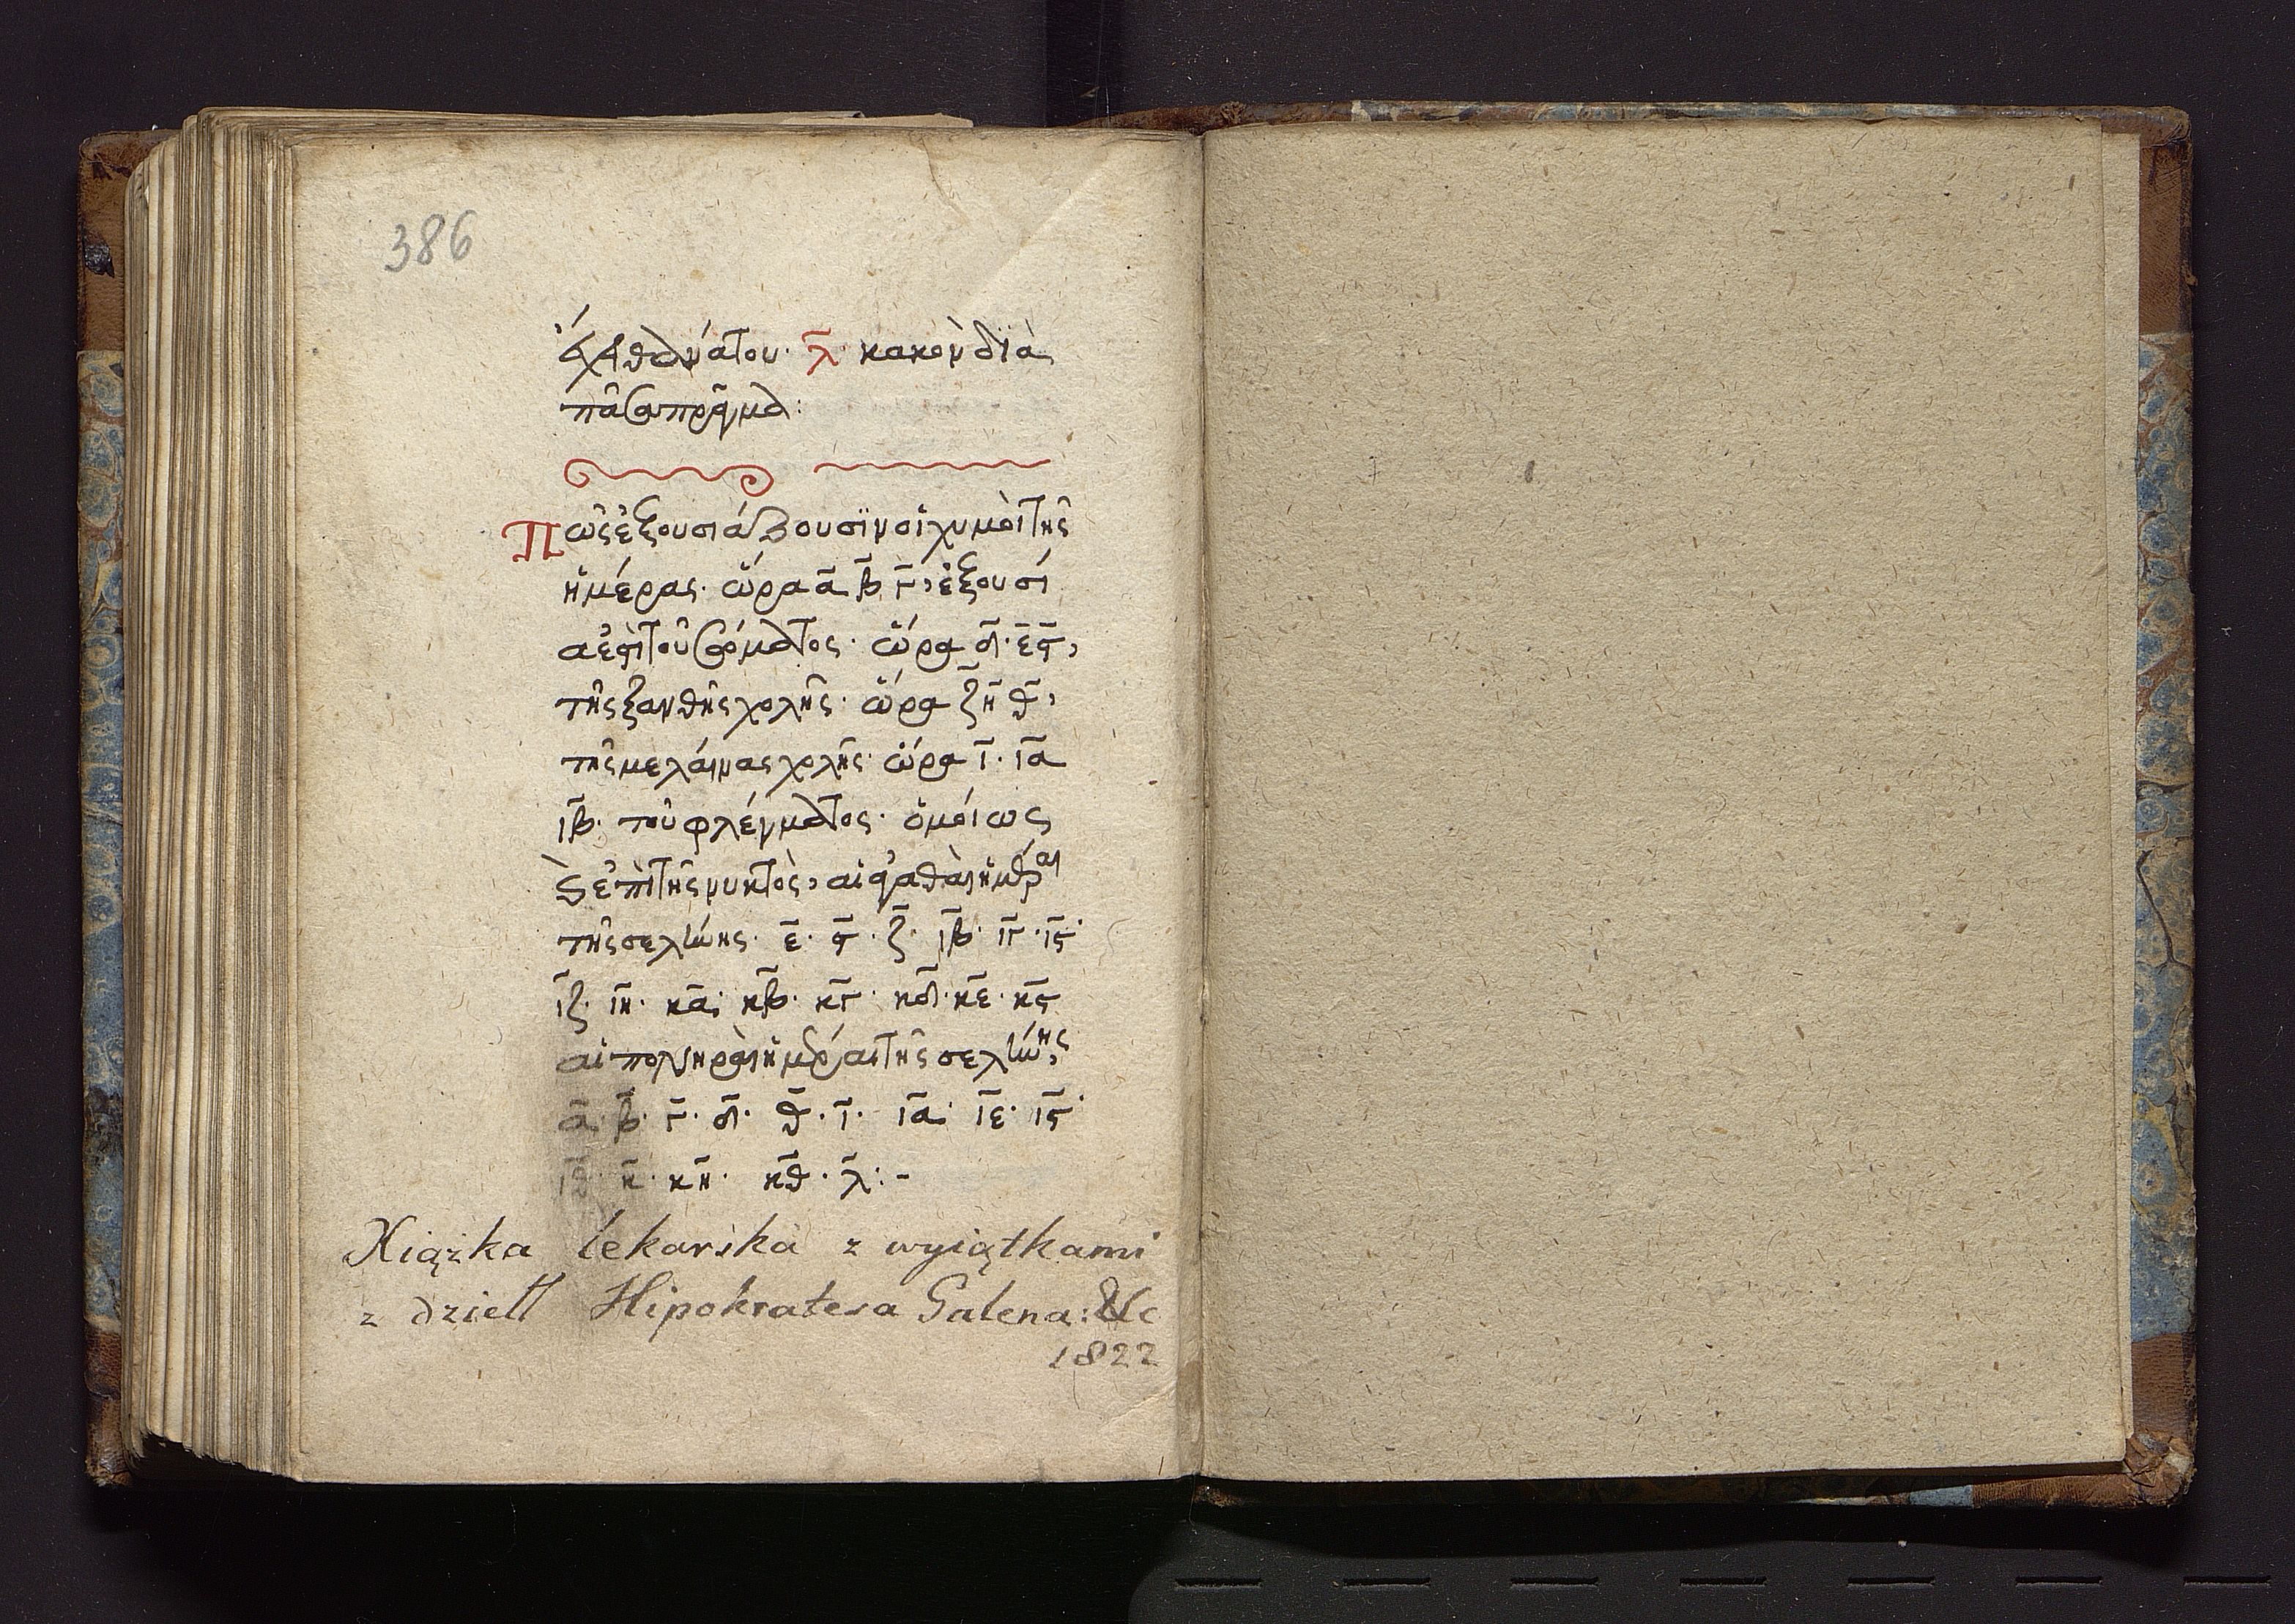 386
ἕως θανάτου· λ̄ κακὸν διὰ
πᾶσαν πρᾶγμα:
Πῶς ἐξουσιάζουσϊν οἱ χυμοὶ τῆς
ἡμέρας· ὥρα ᾱ β̄ γ̄, ἐξουσί
α ἐστὶ τοῦ αἵματος· ὥρα δ̄· ε̄ ϛ̄,
τῆς ξανθῆς χολῆς· ὥρα ζ̄ η̄ θ̄,
τῆς μελαίνας χολῆς· ὥρα ῑ· ῑᾱ
ῑβ̄· τοῦ φλέγματος· ὁμοίως
καὶ ἐπὶ τῆς νυκτὸς, αἱ ἀγαθαὶ ἡμέραι
τῆς σελήνης· ε̄· ϛ̄· ζ̄· ῑβ̄· ῑγ̄· ῑϛ̄·
ῑζ̄· ῑη̄· κ̄ᾱ· κ̄β̄· κ̄γ̄· κ̄δ̄· κ̄ε̄· κ̄ϛ̄
αἱ πονηραὶ ἡμέραι τῆς σελήνης,
ᾱ· β̄· γ̄· δ̄· θ̄· ῑ· ῑᾱ· ῑε̄· ῑϛ̄·
ῑθ̄· κ̄· κ̄η̄· κ̄θ̄· λ̄:-
Xiążka lekarska z wyiątkami
z dziełł Hipokratesa Galena: &c
1822